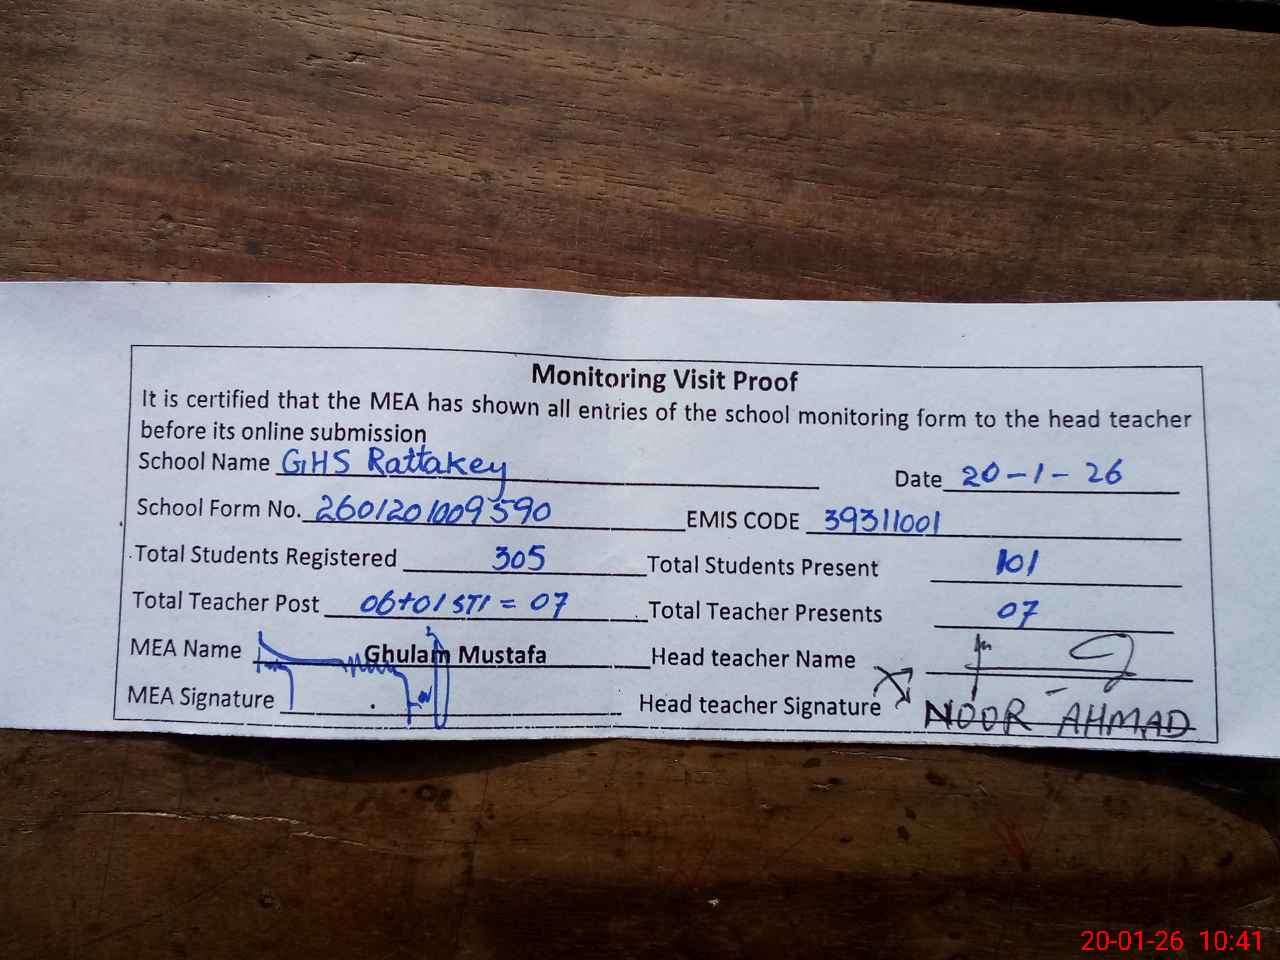 Monitoring Visit Proof
It is certified that the MEA has shown all entries of the school monitoring form to the head teacher
before its online submission
School Name GHS Rattakey Date 20-1-26
School Form No. 2601201009590 EMIS CODE 39311001
Total Students Registered 305 Total Students Present 101
Total Teacher Post 06+01 STI = 07 Total Teacher Presents 07
MEA Name Ghulam Mustafa Head teacher Name
MEA Signature Head teacher Signature NOOR AHMAD
20-01-26 10:41